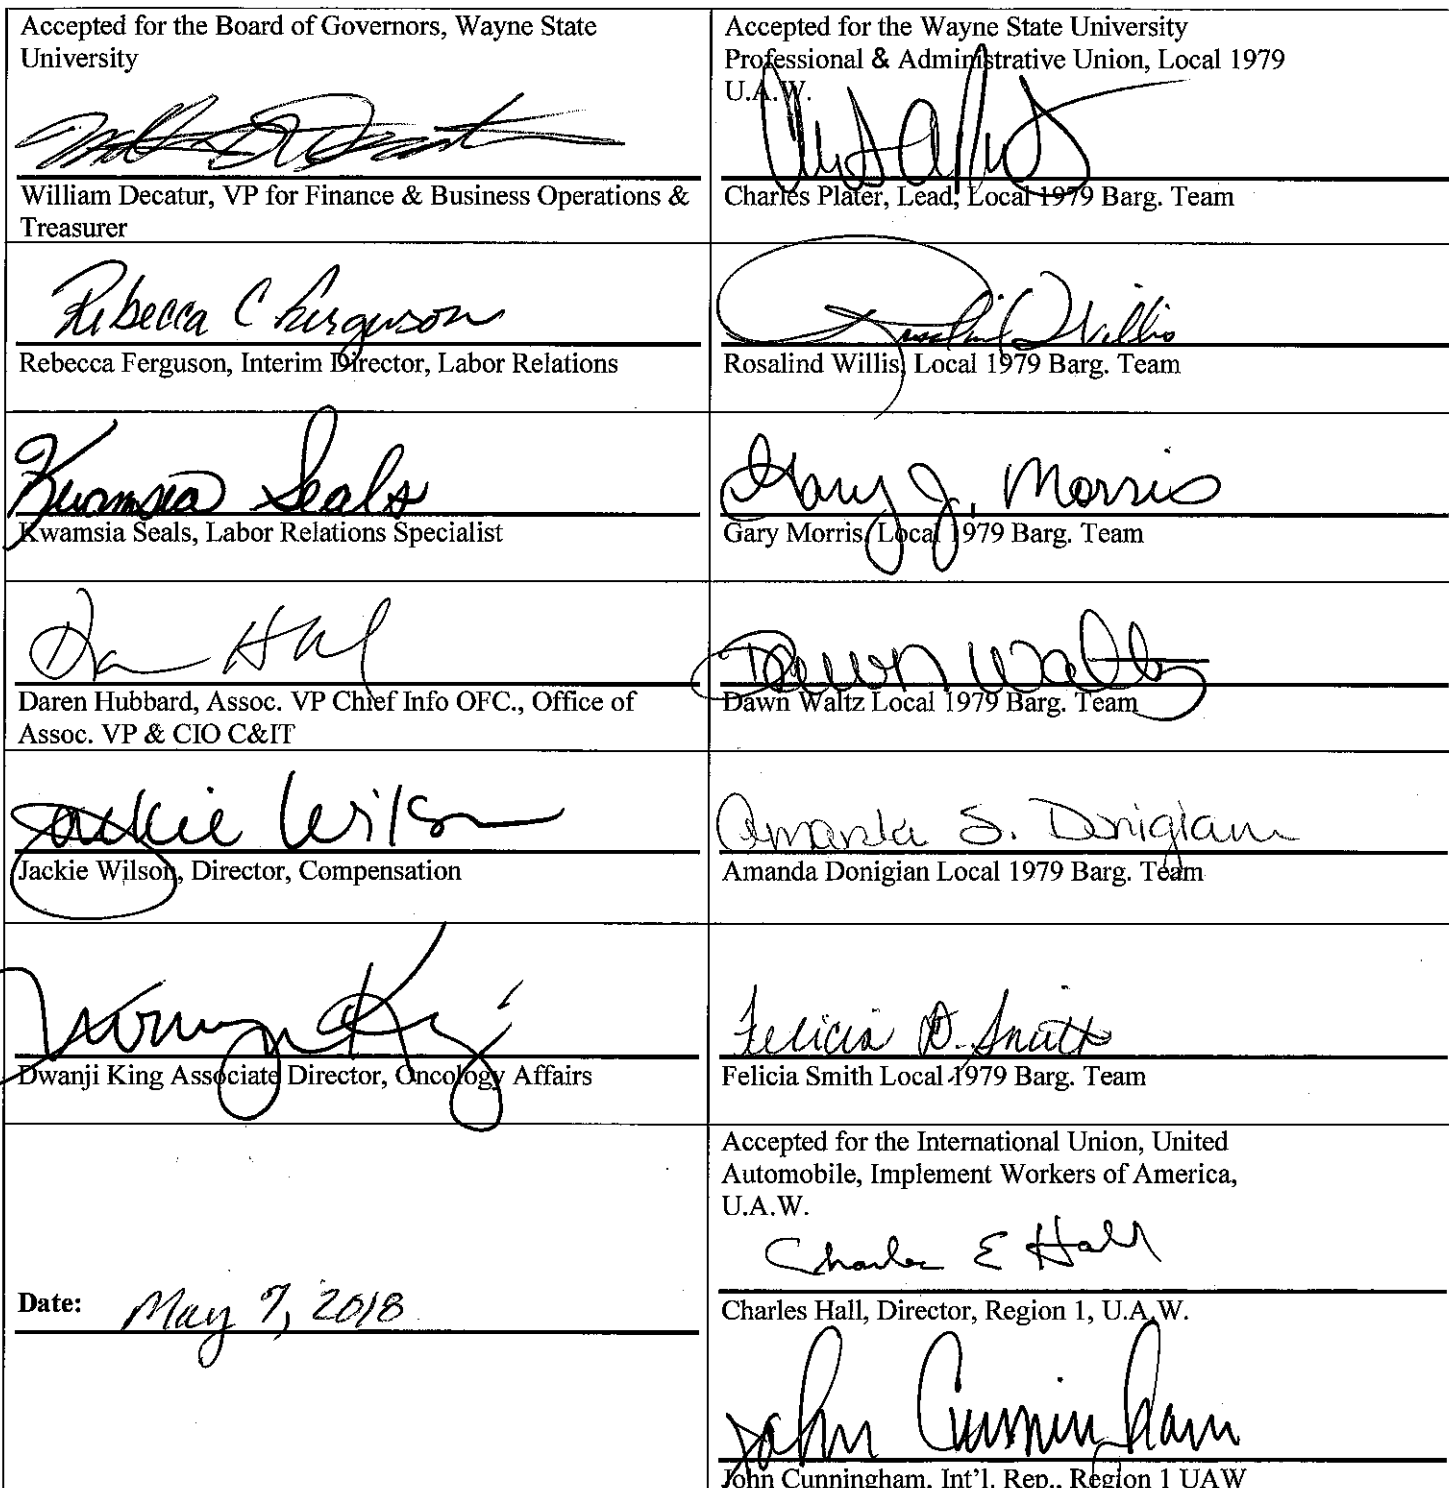 Accepted for the Board of Governors, Wayne State
University
William Decatur, VP for Finance & Business Operations &
Treasurer
Accepted for the Wayne State University
Professional & Administrative Union, Local 1979
U.A.W.
Charles Plater, Lead, Local 1979 Barg. Team
Rebecca C Ferguson
Rebecca Ferguson, Interim Director, Labor Relations
Rosalind Willis, Local 1979 Barg. Team
Kwamsia Seals
Kwamsia Seals, Labor Relations Specialist
Gary J. Morris
Gary Morris, Local 1979 Barg. Team
Daren Hubbard, Assoc. VP Chief Info OFC., Office of
Assoc. VP & CIO C&IT
Dawn Waltz
Dawn Waltz Local 1979 Barg. Team
Jackie Wilson
Jackie Wilson, Director, Compensation
Amanda S. Donigian
Amanda Donigian Local 1979 Barg. Team
King
Dwanji King Associate Director, Oncology Affairs
Felicia D. Smith
Felicia Smith Local 1979 Barg. Team
Date: May 7, 2018
Accepted for the International Union, United
Automobile, Implement Workers of America,
U.A.W.
Charles E Hall
Charles Hall, Director, Region 1, U.A.W.
John Cunningham
John Cunningham, Int'l. Rep., Region 1 UAW